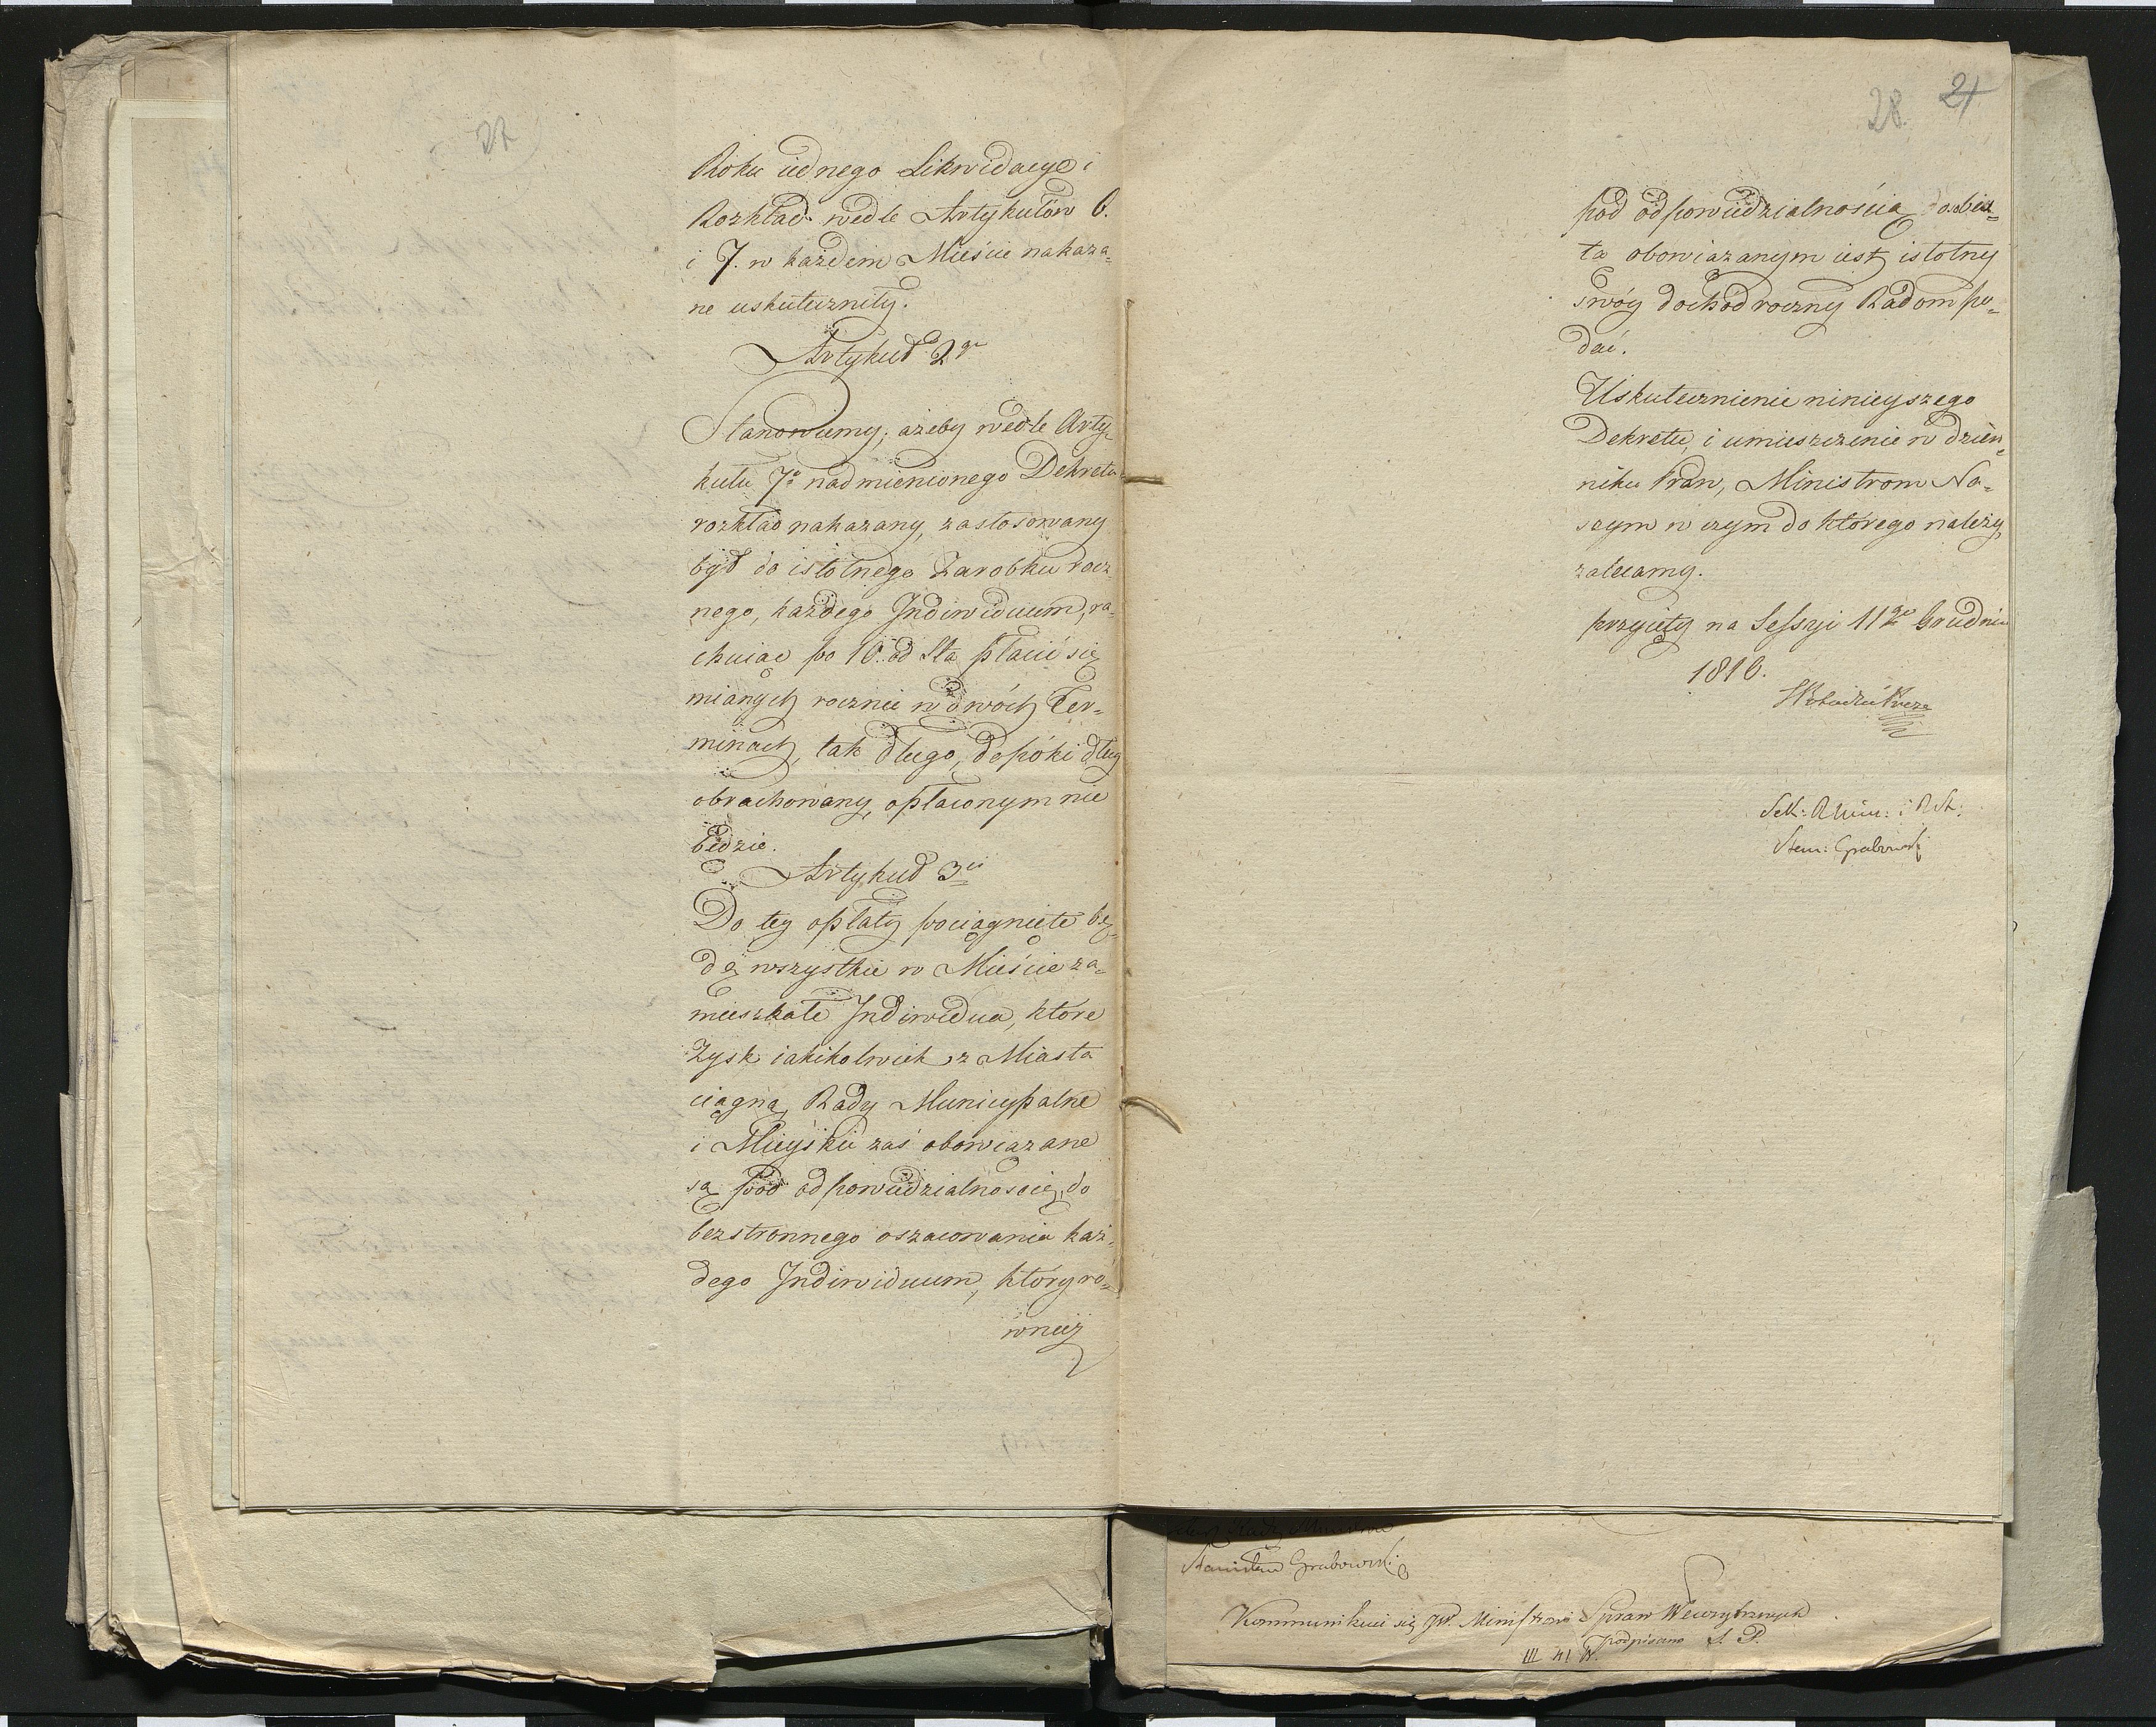 27
Roku iednego Likwidacye i
Rozkład wedle Artykułów 6.
i 7. w każdem Mieście nakaza-
ne uskuteczniły.
Artykuł 2gi
Stanowiemy, ażeby wedle Arty-
kułu 7o nadmienionego Dekretu
rozkład nakazany, zastosowany
był do istotnego Zarobku rocz-
nego, każdego Indiwiduum, ra-
chuiąc po 10. od Sta płacić się
mianych rocznie w dwóch Ter-
minach, tak długo, dopóki dług
obrachowany, opłaconym nie
będzie.
Artykuł 3ci
Do tey opłaty pociągnięte bę-
dą wszystkie w Mieście za-
mieszkałe Indiwidua, które
Zysk iakikolwiek z Miasta
ciągną, Rady Municypalne
i Mieyskie zaś obowiązane
są pod odpowiedzialnością, do
bezstronnego oszacowania każ-
dego Indiwiduum, który ró-
wnież
28. 21
pod odpowiedzialnością osobis-
tą obowiązanym iest, istotny
swóy dochód roczny Radom po-
dać.
Uskutecznienie ninieyszego
Dekretu, i umieszczenie w dzien-
niku Praw, Ministrom Na-
szym w czym do którego należy,
zalecamy.
przyięty na Sessyi 11go Grudnia
1810.
Sek: R Min: i R St:
Stan: Grabowski
Stanisław Grabowski
Kommunikuie się JW. Ministrowi Spraw Wewnętrznych
podpisano S. P.
III 41 W.